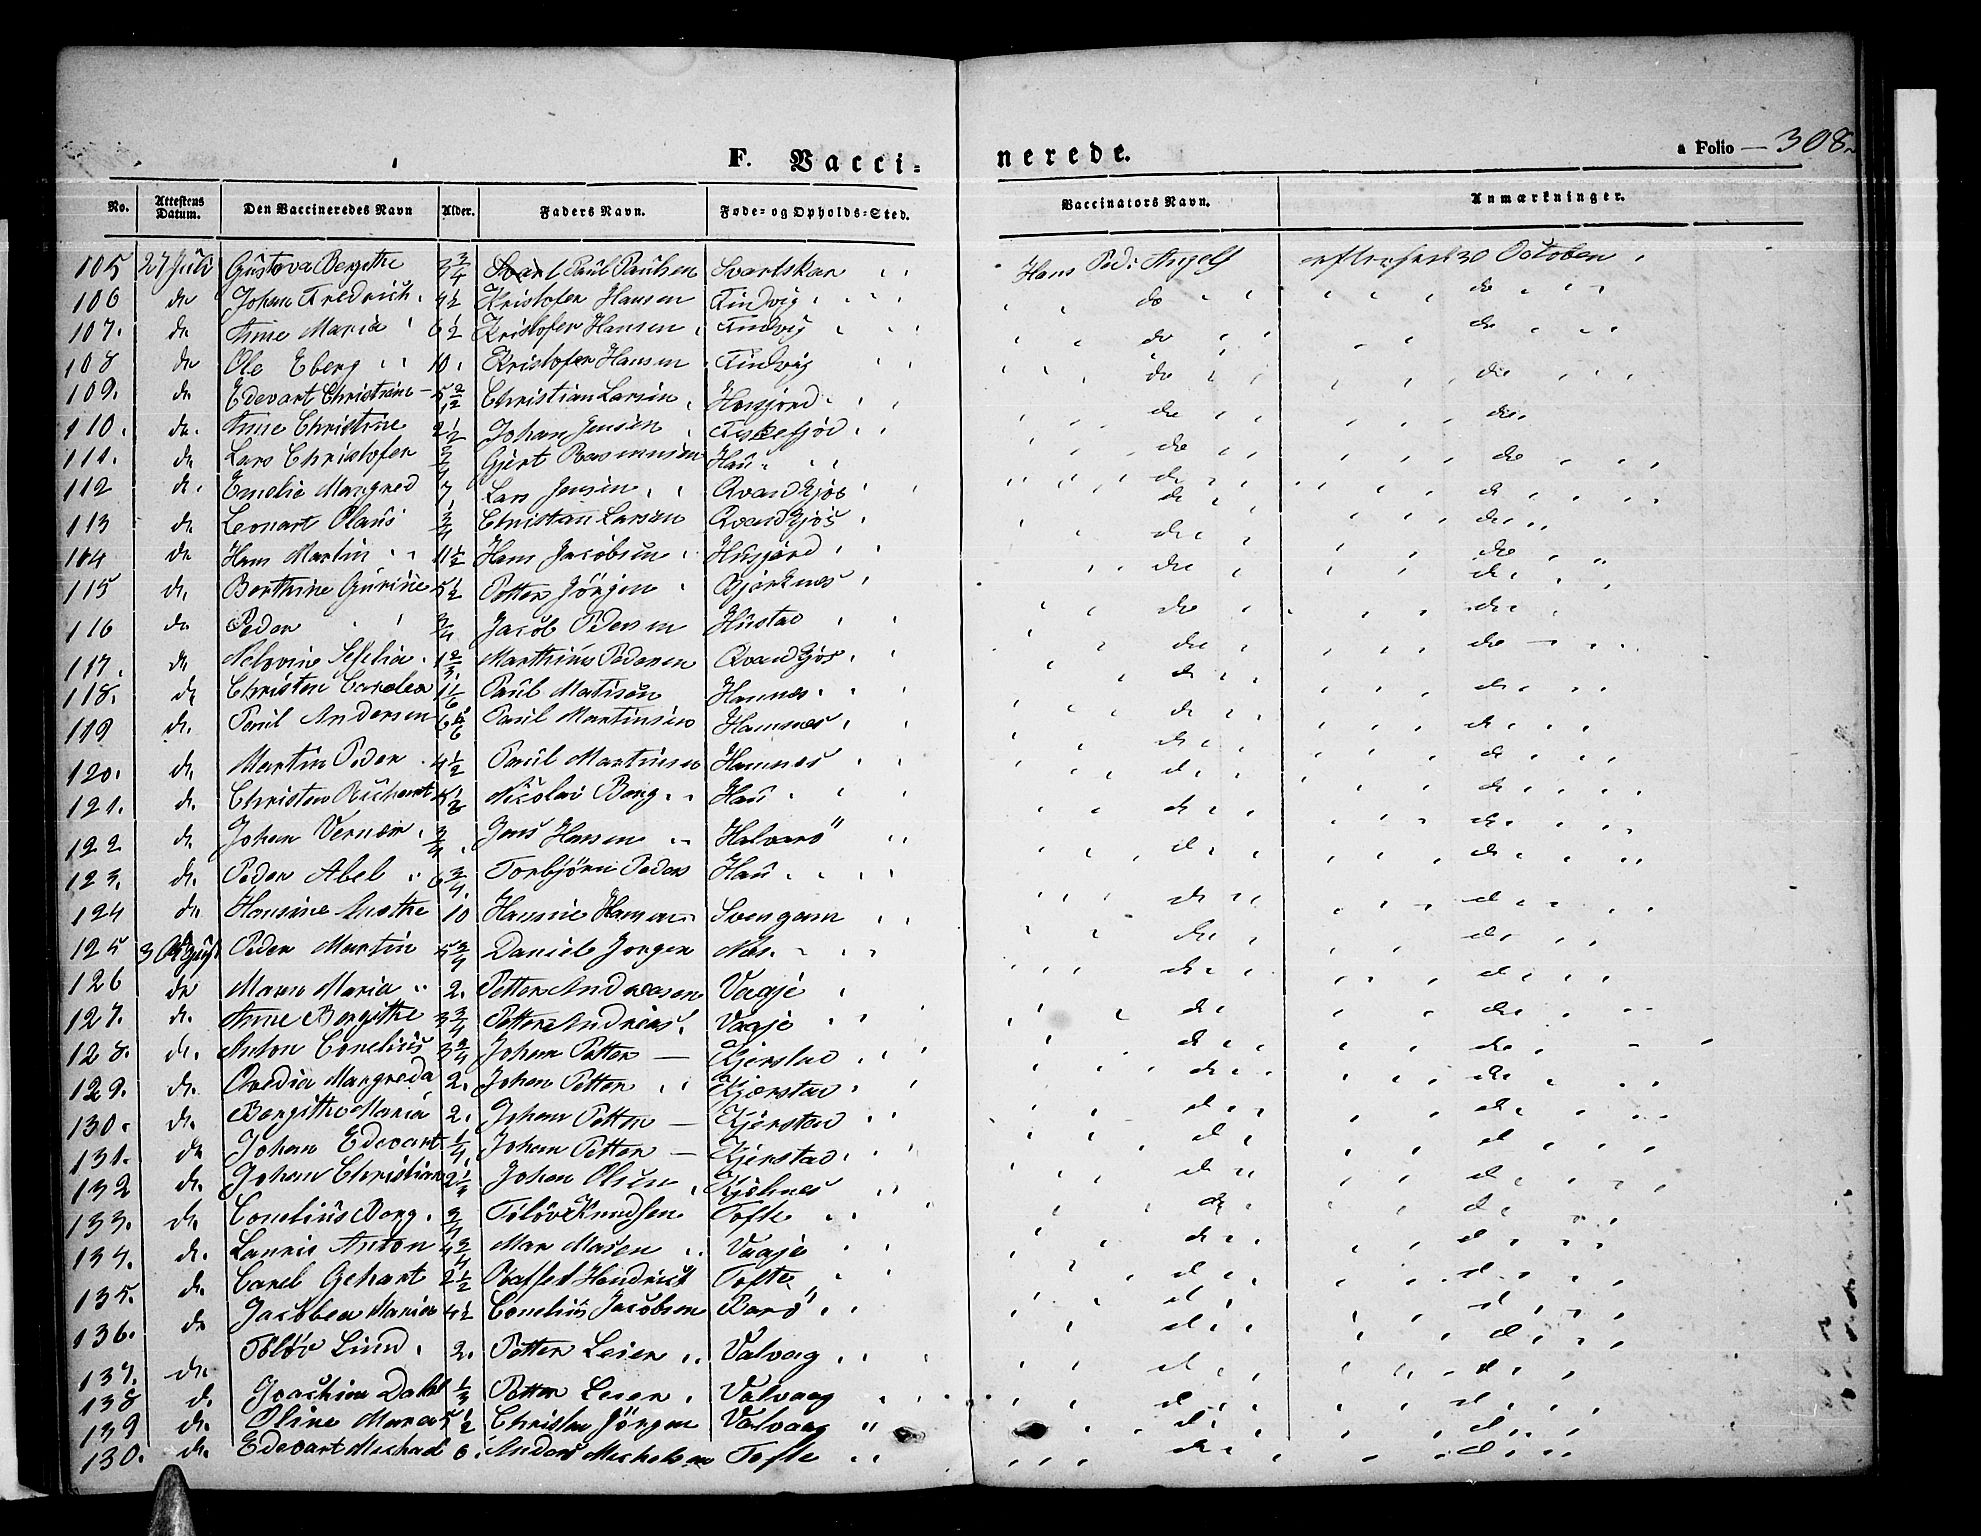 F. Vacci- nerede. a Folio 308
No. Attestens Datum. Den Vaccineredes Navn Alder. Faders Navn. Føde- og Opholds-Sted. Vaccinators Navn. Anmærkninger.
105 27 Juli Gustava Bergithe 3 3/4 Paul Paulsen Svartskar Hans Ped: Angell 30 October
106 do Johan Fredrich 4 1/2 Kristofer Hansen Findvig do do
107. do Anne Maria 6 1/2 Kristofer Hansen Findvig do do
108 do Ole Eberg 10 Kristofer Hansen Findvig do do
109. do Edevart Christian Christian Larsen Husjord do do
110. do. Anne Christine 2 1/2 Johan Jensen Fiskefjød do do
111. do Lars Christofer 3/4 Gjert Rasmusen Hau do do
112 do. Emelie Margred 7 Lars Jensin Qvandkjøs do do
113 do Leonart Olaus 3/4 Christian Larsen Qvandkjøs do do
114 do Hans Martin 11 1/2 Hans Jacobsen Husjord do do
115 do. Berthine Gurine 5 1/2 Petter Jörgen Bjerknes do do
116 do Peder 3/4 Jacob Pedersen Hustad do do
117. do 1 2/3 Marthinus Pedersen Qvandkjøs do do
118. do Christen Carolea 1 1/6 Paul Matison Hamnes do do
119 do. Paul Andersen 6 5/6 Paul Martinsen Hamnes do do
120. do. Martin Peder 4 1/2 Paul Martinsen Hamnes do do
121. do. Christen Richart Nicolai Berg Hau do do
122 do Johan Vernær 3/4 Jens Hansen Halvarö do do
123. do. Peder Abel 6 3/4 Torbjörn Peders Hau do do
124 do Hansine Anethe 10 Hansine Hansen Svengam do do
125 3 August Peder Martin 5 3/4 Daniel Jorgen Nes. do do
126 do Maren Maria 2. Petter Andreasen Vaaje do do
127. do. Anne Bergithe 3 3/4 Petter Andreas Vaaje do do
128. do. Anton Conelius 3 3/4 Johan Petter Kjerstad do do
129. do. Ovedia Margreda 2. Johan Petter Kjærstad do do
130. do. Bergitha Maria 2. Johan Petter Kjerstad do do
131. do Johan Edevart 1/4 Johan Petter Kjerstad do do
132 do. Johan Christian 2 1/3 Johan Olsen Kjölnes do do
133. do. Conelius Berg 3/4 Tolöv Knudsen Tofte do do
134. do. Lauris Anton 4 3/4 Mar Masen Vaaje do do
135. do. Carel Gehart 2 1/2 Raffel Hendrict Tofte do do
136. do Jackbea Maria 4 1/2 Conelius Jacobsen Barö do do
137. do. Tolöv Lind 2. Petter Leier Valvaag do do
138 do. Joachim Dahl 1/3 Petter Leier Valvaag do do
139 do. Oline Marea 5 1/2 Christen Jörgen Valvaag do do
130. do. Edevart Michael 6. Anders Michelsen Tofte do do